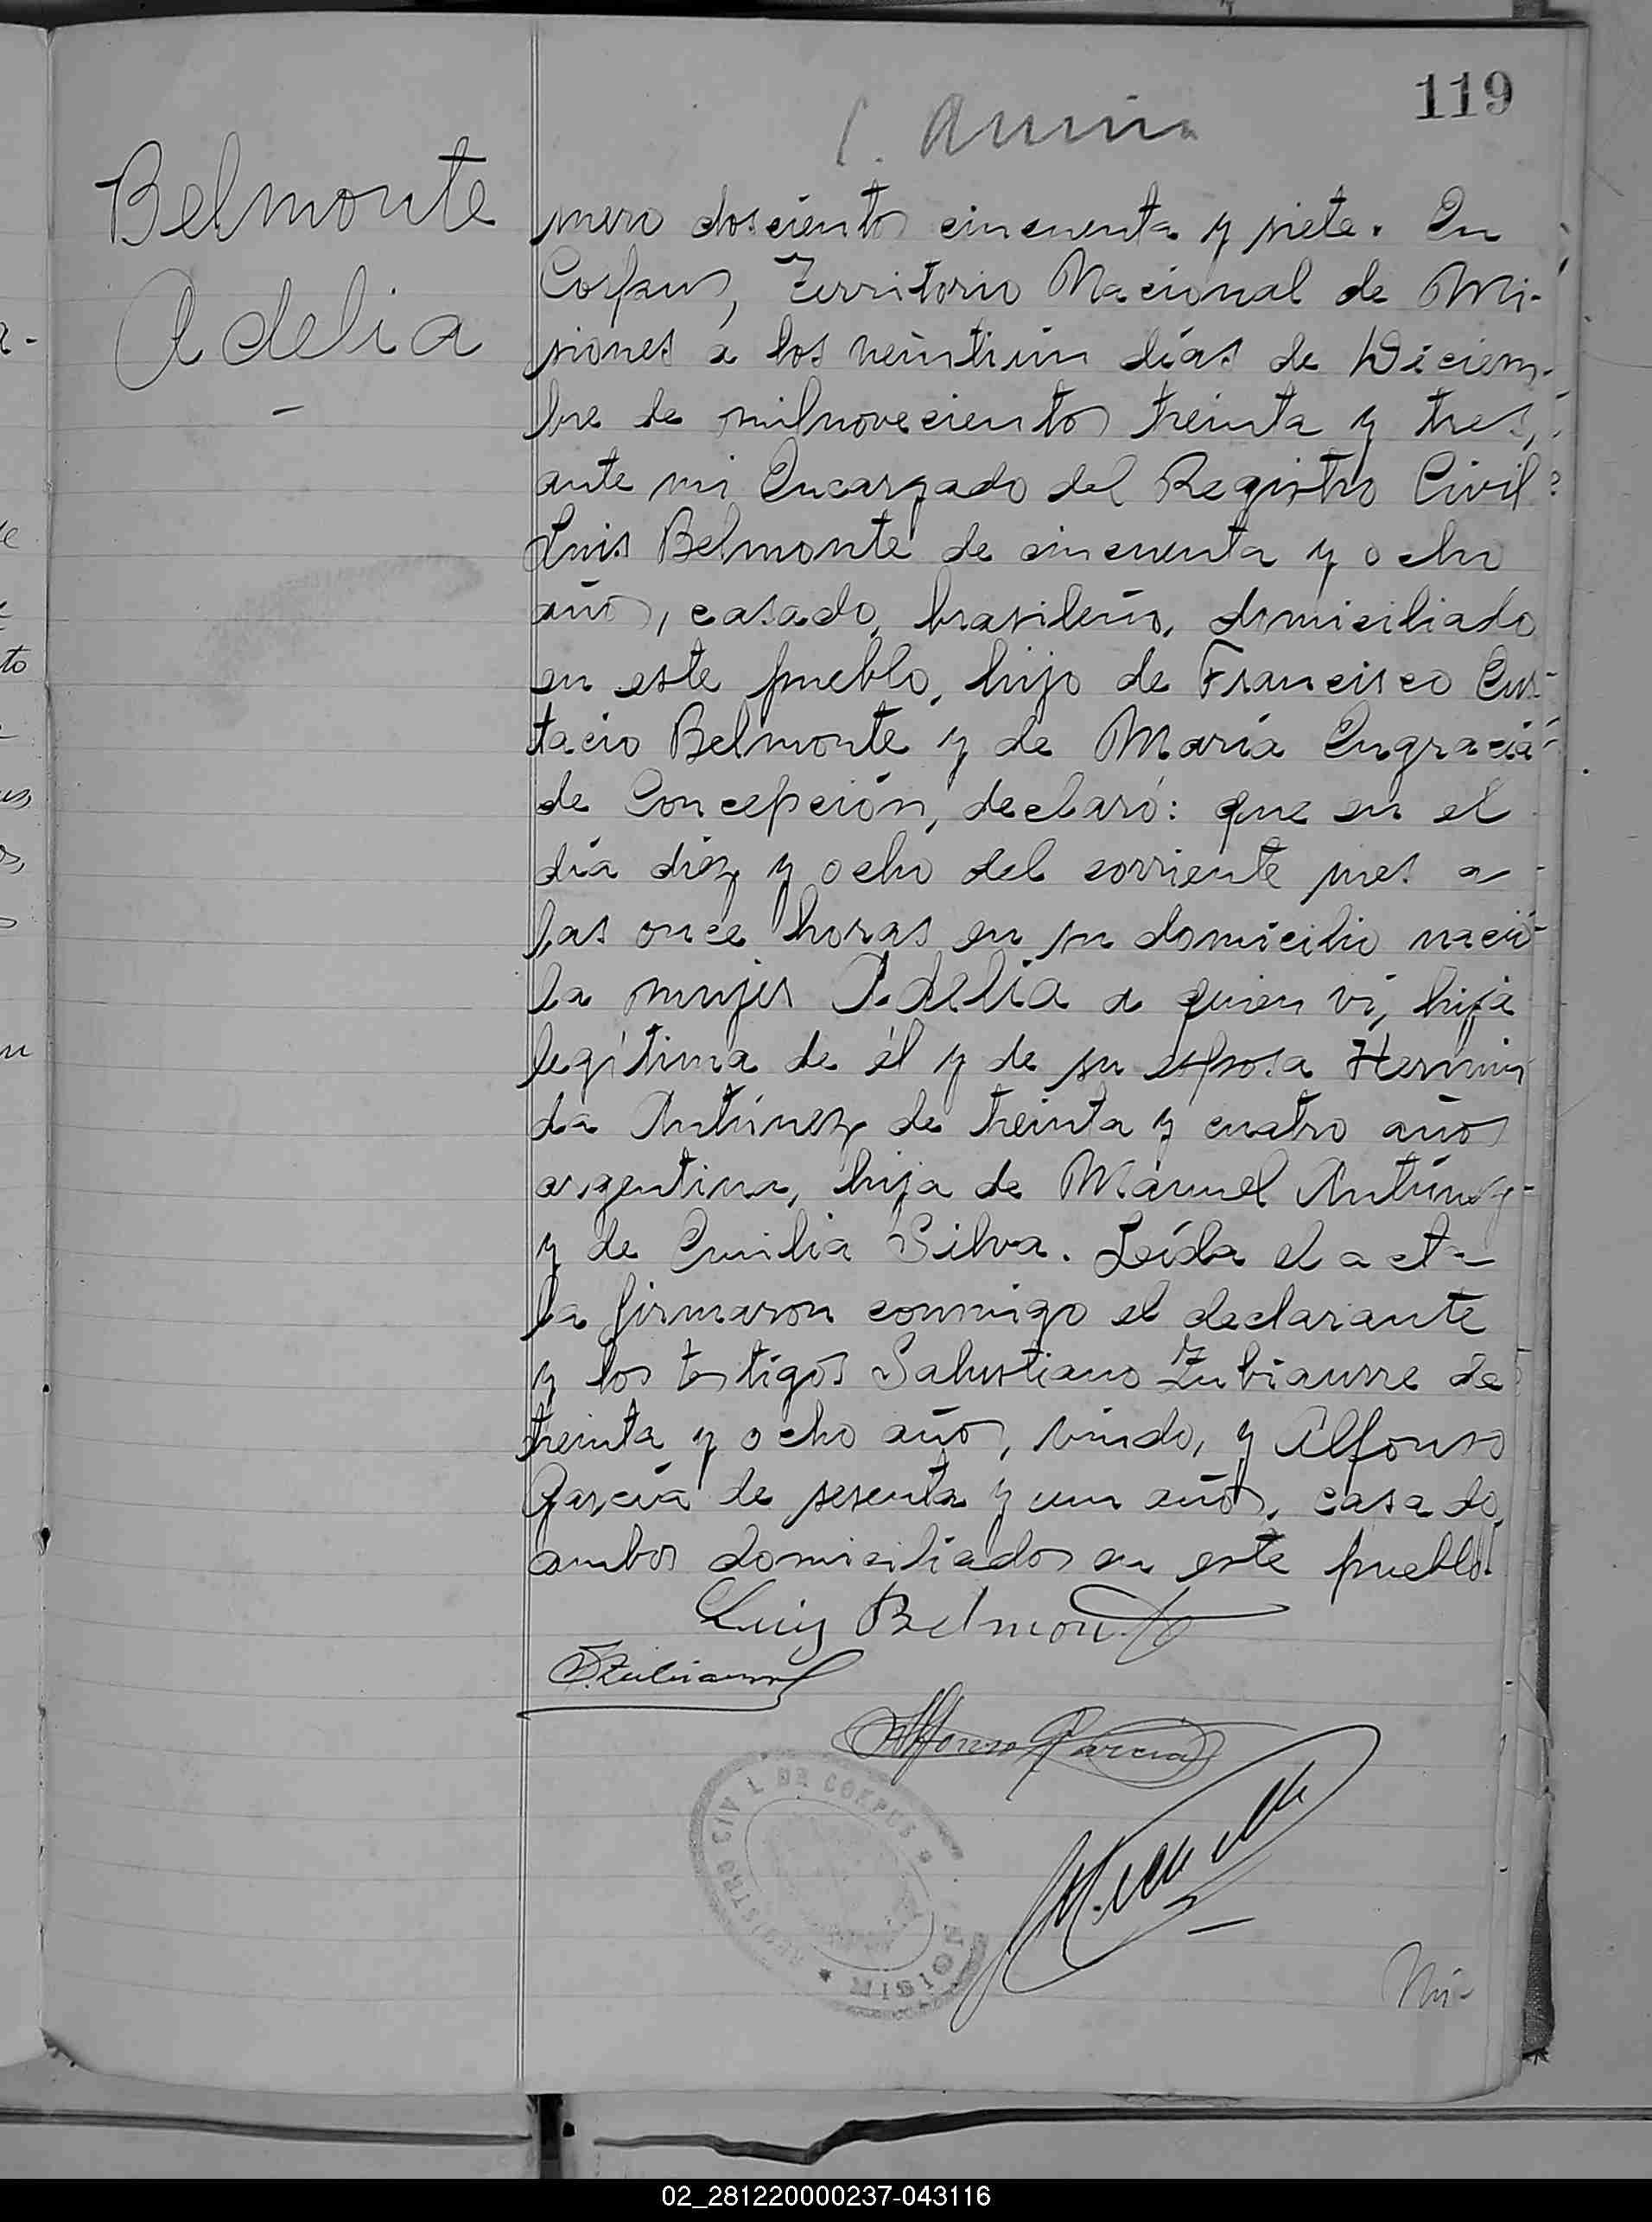 119
Belmonte
Adelia
mero doscientos cincuenta y siete. En
Corpus, Territorio Nacional de Mi-
siones a los veintiún días de Diciem-
bre de milnovecientos treinta y tres,
ante mi Encargado del Registro Civil
Luis Belmonte de cincuenta y ocho
años, casado, brasileño, domiciliado
en este pueblo, hijo de Francisco Eus-
tacio Belmonte y de María Engracia
de Concepción, declaró: que en el
día diez y ocho del corriente mes a
las once horas en su domicilio nació
la mujer Adelia a quien ví, hija
legítima de él y de su esposa Hermin
da Antúnez de treinta y cuatro años
argentina, hija de Manuel Antúnez
y de Emilia Silva. Leída el acta
la firmaron conmigo el declarante
y los testigos Salustiano Zubiaurre de
treinta y ocho años, viudo, y Alfonso
García de sesenta y un años, casado,
ambos domiciliados en este pueblo.
Luis Belmonte
S. Zubiaurre
Alfonso Garcia
REGISTRO CIVIL DE CORPUS * MISIONES *
Nú-
02_281220000237-043116